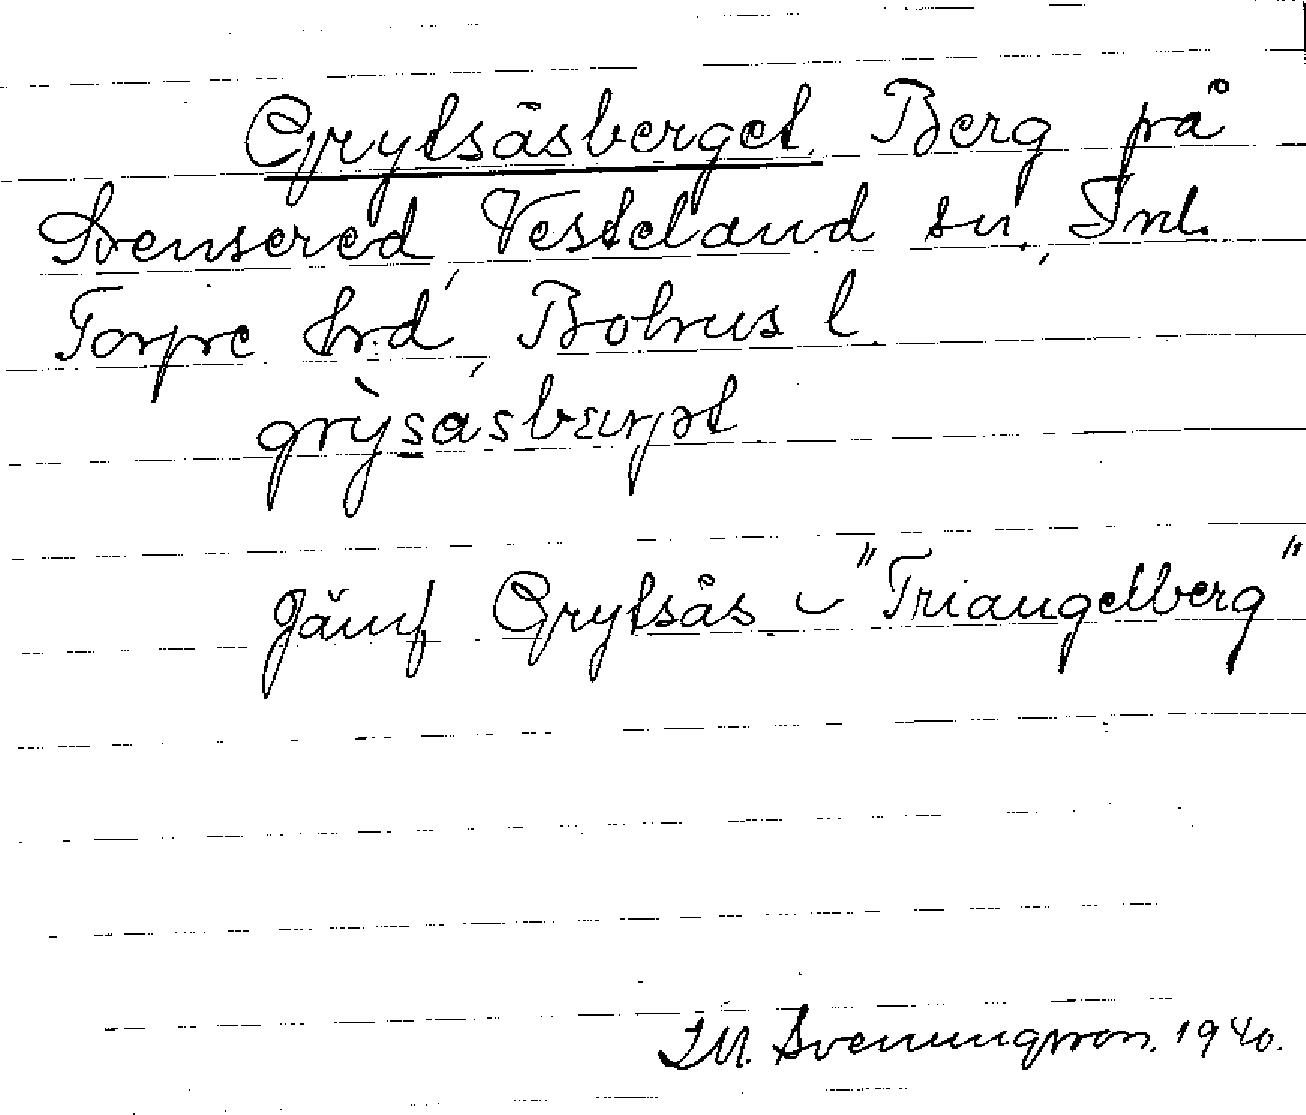 Grytsåsberget. Berg på
Svensered, Vesteland sn., Inl.
Torpe hrd, Bohus l.
grỳsásbærjət
Jämf Grytsås – "Triangelberg"
I.M. Svenungsson. 1940.